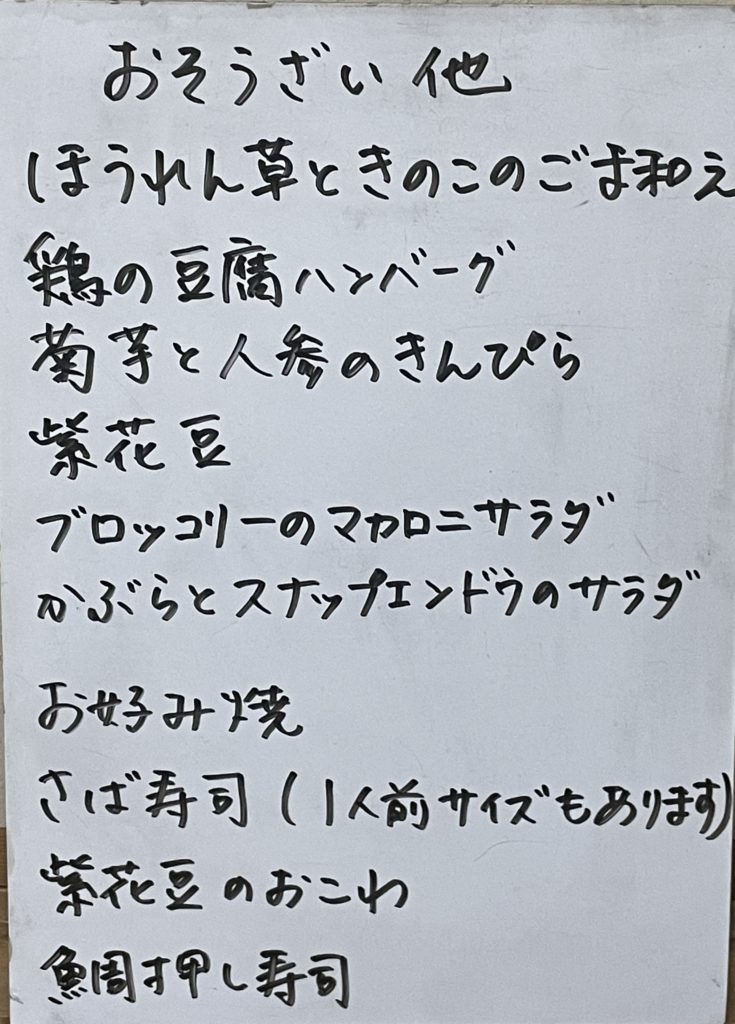 おそうざい 他
ほうれん草ときのこのごま和え
鶏の豆腐ハンバーグ
菊芋と人参のきんぴら
紫花豆
ブロッコリーのマカロニサラダ
かぶらとスナップエンドウのサラダ
お好み焼
さば寿司(1人前サイズもあります)
紫花豆のおこわ
鯛押し寿司